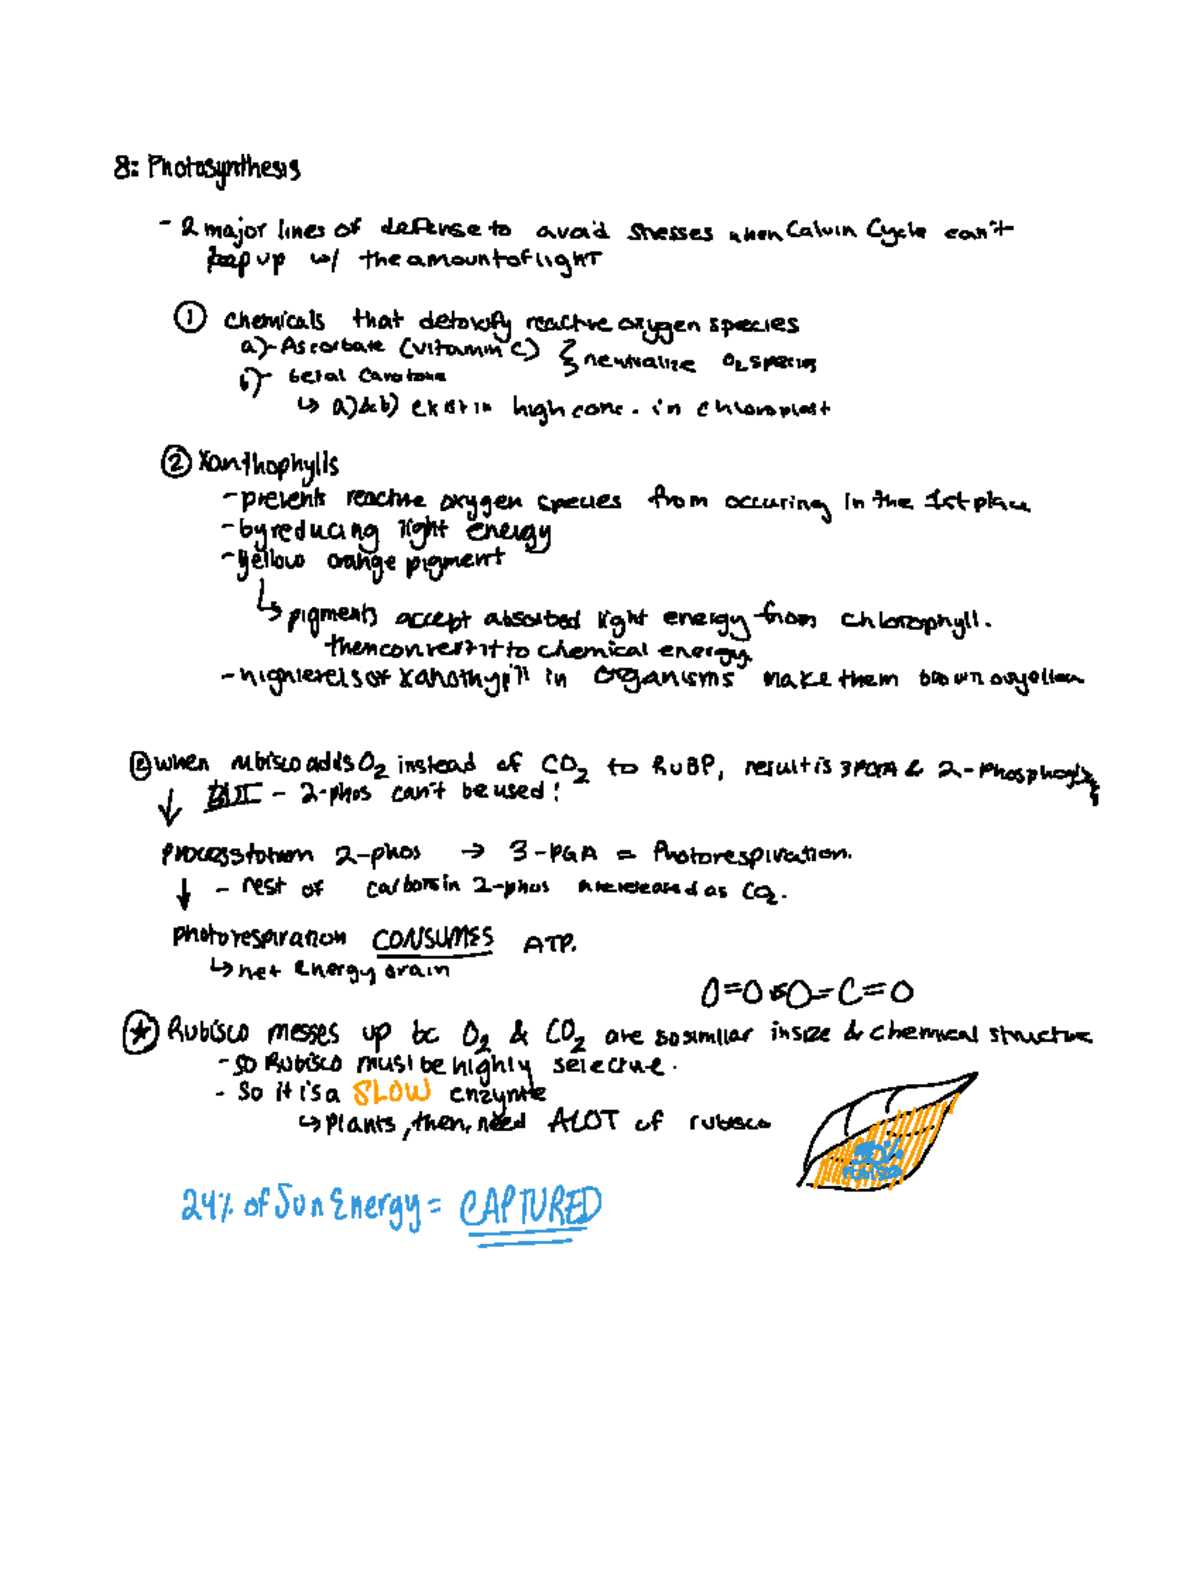 8: Photosynthesis
- 2 major lines of defense to avoid stresses when Calvin Cycle can't
keep up w/ the amount of light
① chemicals that detoxify reactive oxygen species
a) - Ascorbate (vitamin C) } neutralize O2 species
b) - betal carotene
↳ a) & b) exist in high conc. in chloroplast
② Xanthophylls
- prevents reactive oxygen species from occuring in the 1st place
- by reducing light energy
- yellow orange pigment
↳ pigments accept absorbed light energy from chlorophyll.
then convert it to chemical energy.
- high levels of xanothypll in organisms make them brown or yellow
② when rubisco adds O2 instead of CO2 to RuBP, result is 3PGA & 2-Phosphogly
↓ BUT - 2-phos can't be used!
process to turn 2-phos → 3-PGA = Photorespiration.
↓ - rest of carbons in 2-phos are released as CO2.
photorespiration CONSUMES ATP.
↳ net energy drain
O=O vs O=C=O
★ Rubisco messes up bc O2 & CO2 are so similar in size & chemical structure
- so Rubisco must be highly selective.
- So it is a SLOW enzyme
↳ plants, then, need ALOT of rubisco
24% of Sun Energy = CAPTURED